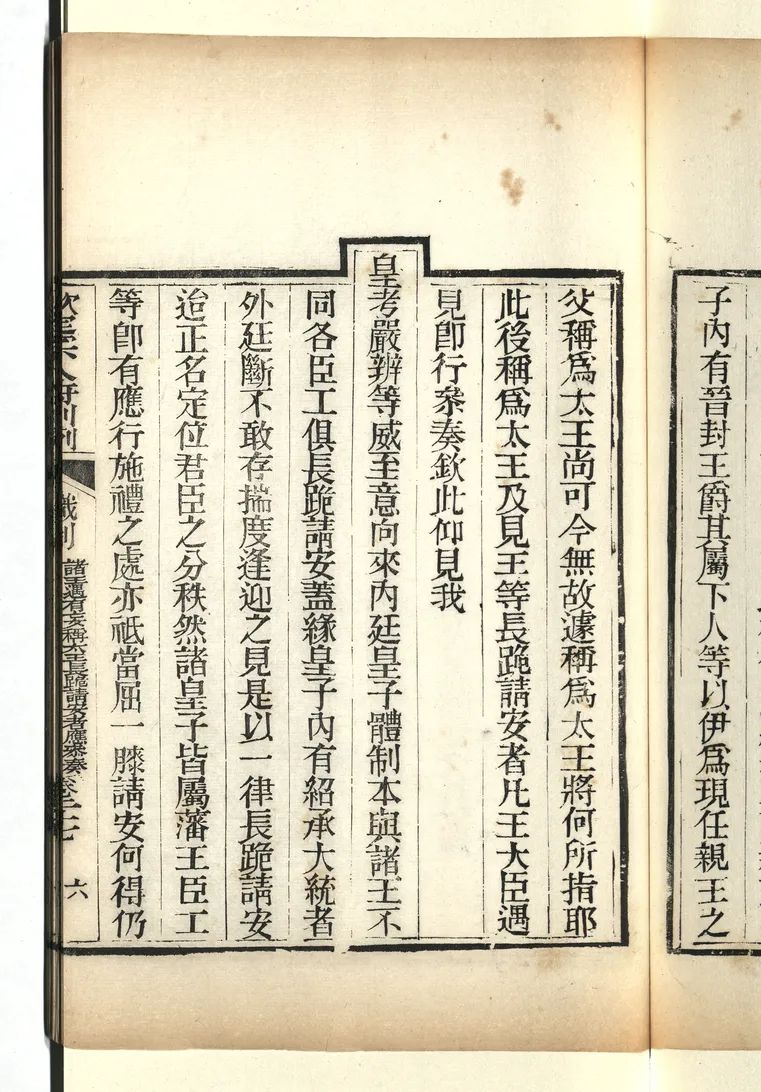 子內有晉封王爵其屬下人等以伊爲現任親王之
父稱爲太王尚可今無故遽稱爲太王將何所指耶
此後稱爲太王及見王等長跪請安者凡王大臣遇
見卽行叅奏欽此仰見我
皇考嚴辨等威至意向來內廷皇子體制本與諸王不
同各臣工俱長跪請安蓋緣皇子內有紹承大統者
外廷斷不敢存揣度逢迎之見是以一律長跪請安
迨正名定位君臣之分秩然諸皇子皆屬藩王臣工
等卽有應行施禮之處亦祇當屈一膝請安何得仍
職制
諸王遇有妄稱太王長跪請安者應叅奏
六